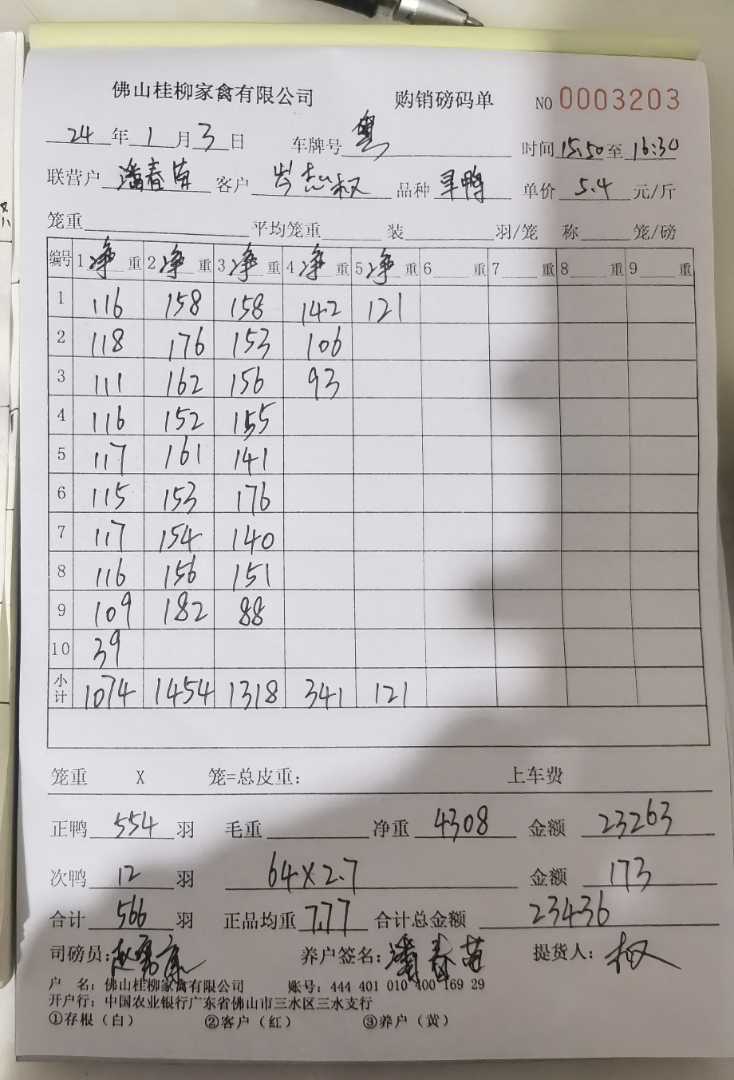 佛山桂柳家禽有限公司 购销磅码单 NO 0003203
24 年 1 月 3 日 车牌号 粤 时间 15:50 至 16:30
联营户 潘春苗 客户 岑志权 品种 单价 5.4 元/斤
笼重 平均笼重 装 羽/笼 称 笼/磅
编号 1 净 重 2 净 重 3 净 重 4 净 重 5 净 重 6 重 7 重 8 重 9 重
1 116 158 158 142 121
2 118 176 153 106
3 111 162 156 93
4 116 152 155
5 117 161 141
6 115 153 176
7 117 154 140
8 116 156 151
9 109 182 88
10 39
小计 1074 1454 1318 341 121
笼重 X 笼=总皮重: 上车费
正鸭 554 羽 毛重 净重 4308 金额 23263
次鸭 12 羽 64×2.7 金额 173
合计 566 羽 正品均重 7.77 合计总金额 23436
司磅员: 养户签名: 潘春苗 提货人: 权
户 名: 佛山桂柳家禽有限公司 账号: 444 401 010 400 169 29
开户行: 中国农业银行广东省佛山市三水区三水支行
①存根（白） ②客户（红） ③养户（黄）